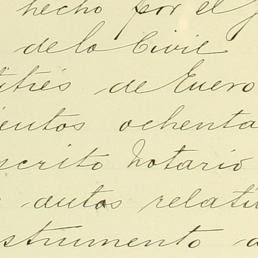 hecho por el j
de lo Civil
titrés de Enero
ientos ochenta
scrito Notario
autos relati
strumento a